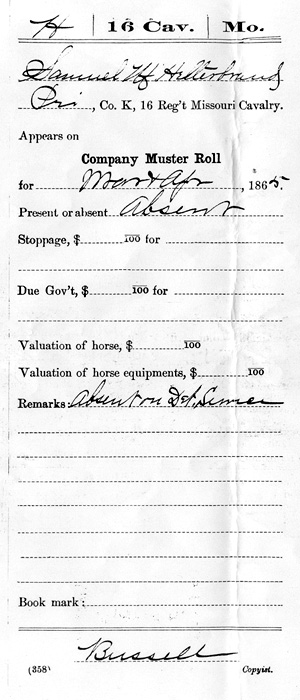 H | 16 Cav. | Mo.
Samuel W Hilterbrand
Pri, Co. K, 16 Reg't Missouri Cavalry.
Appears on
Company Muster Roll
for Mar & Apr, 1865.
Present or absent Absent
Stoppage, $ 100 for
Due Gov't, $ 100 for
Valuation of horse, $ 100
Valuation of horse equipments, $ 100
Remarks: Absent on Det. Service
Book mark:
Bussell
(358) Copyist.